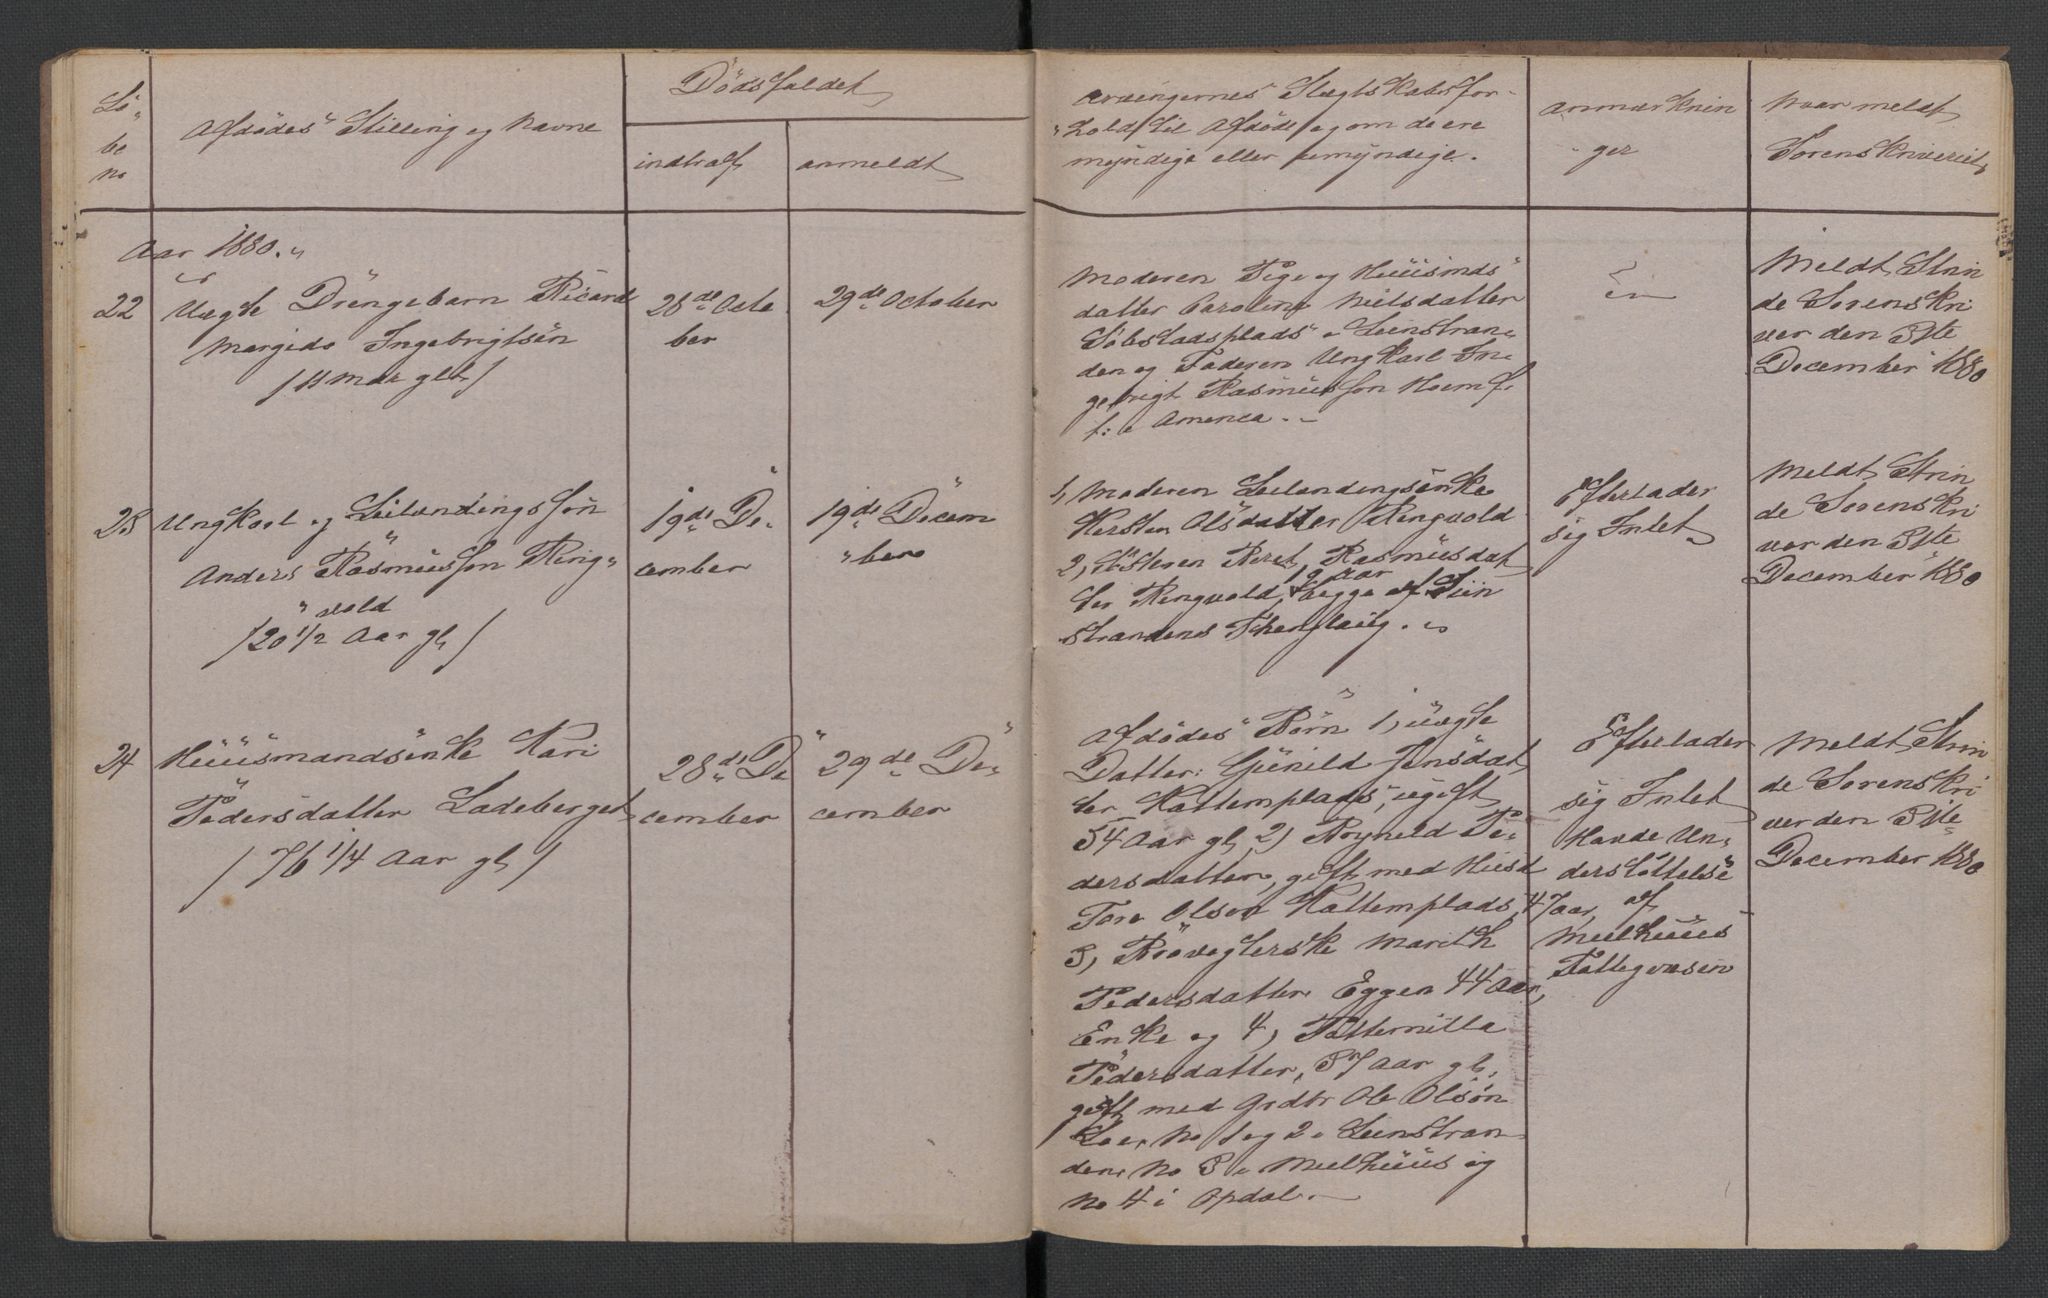 Lö
be
no
Afdödes Stilling og Navne
Dödsfaldet
indtraf
anmeldt
Arvingernes Slægtskabsfor-
hold til Afdöde og om de ere
myndige eller umyndige.
Anmærknin
ger
Naar meldt
Sorenskriveriet
Aar 1880.
22
Uægte Drengebarn Ricard
Margido Ingebrigtsön
/11 mdr glt/
28de Octo
ber
29de October
Moderen Pige og Huusmds
datter Caroline Nilsdatter
Söbstadsplads i Leinstran-
den og Faderen Ungkarl In-
gebrigt Rasmusson Hoem f.
t: i America.
Meldt Strin
de Sorenskri
ver den 31te
December 1880
23
Ungkarl og Leilændingssön
Anders Rasmusson Ring-
vold
/20 1/2 Aar gl/
19de De-
cember
19de Decem
ber
1, Moderen Leilændingsenke
Kersten Olsdatter Ringvold
2, Sösteren Beret Rasmusdat
ter Ringvold, 19 aar begge af Lein
strandens Thinglaug.
Efterlader
sig Intet
Meldt Strin
de Sorenskri
ver den 31te
December 1880
24
Huusmandsenke Kari
Pedersdatter Ladeberget
/76 1/4 Aar gl/
28de De
cember
29de De-
cember
Afdödes Börn 1, uægte
Datter: Gunild Jonsdat
ter Kattemplads, ugift
54 Aar gl, 2) Brynild Pe-
dersdatter, gift med Husd
Tore Olsen Kattemplads, 47 aar,
3, Brövegterske Marith
Pedersdatter Eggen 44 Aar,
Enke og 4, Pøtternille
Pedersdatter, 37 Aar gl,
gift med Grdbr Ole Olsön
Loe, No 1 og 2 i Leinstran-
den, No 3 i Melhuus og
No 4 i Opdal.
Efterlader
sig Intet
Havde Un-
derstöttelse
af
Melhuus
Fattigvæsen
Meldt Strin
de Sorenskri
ver den 31te
December 1880